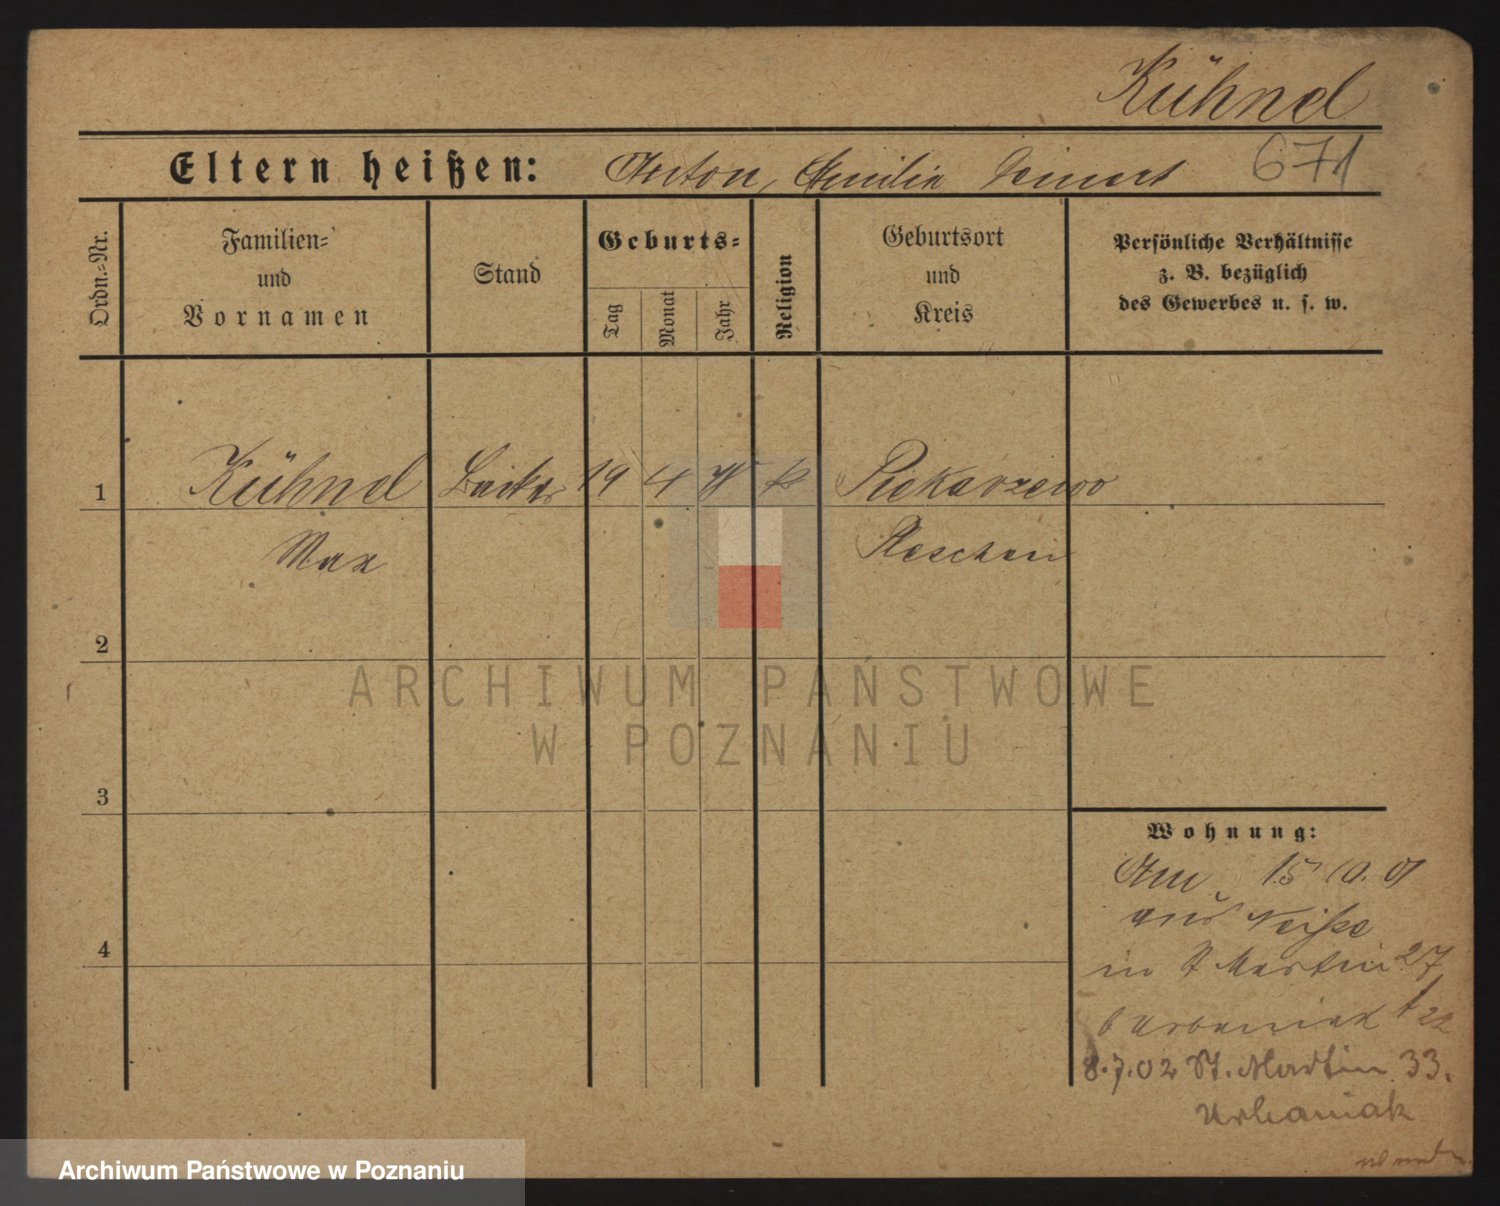 Kühnel
Eltern heißen: Anton, Emilie 671
Ordn.=Nr.
Familien=
und
Vornamen
Stand
Geburts=
Tag
Monat
Jahr
Religion
Geburtsort
und
Kreis
Persönliche Verhältnisse
z. B. bezüglich
des Gewerbes u. s. w.
1 Kühnel 19 4 k Piekarzewo
Max Pleschen
2
3
4
Wohnung:
15 10. 01
aus Neisse
in St Martin 27
b Urbaniak
8.7.02 St. Martin 33.
Urbaniak
ARCHIWUM PAŃSTWOWE
W POZNANIU
Archiwum Państwowe w Poznaniu